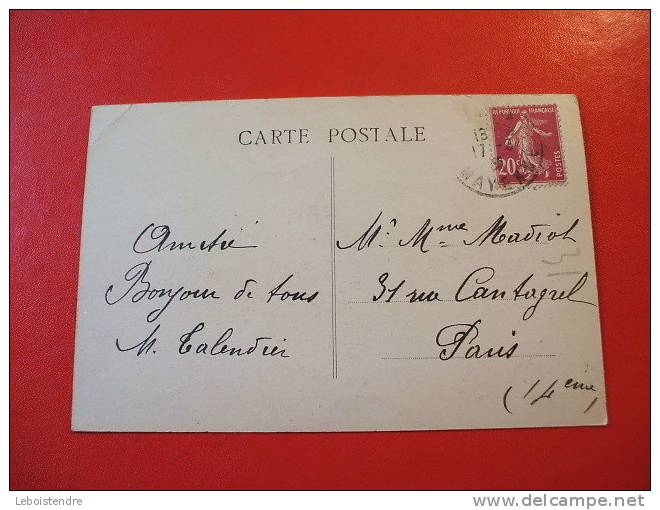 CARTE POSTALE
REPUBLIQUE FRANCAISE
20c
POSTES
Amitié
Bonjour de tous
M. Talendier
Mr. Mme Madiot
31 rue Cantagrel
Paris
(14eme)
Leboistendre
www.delcampe.net